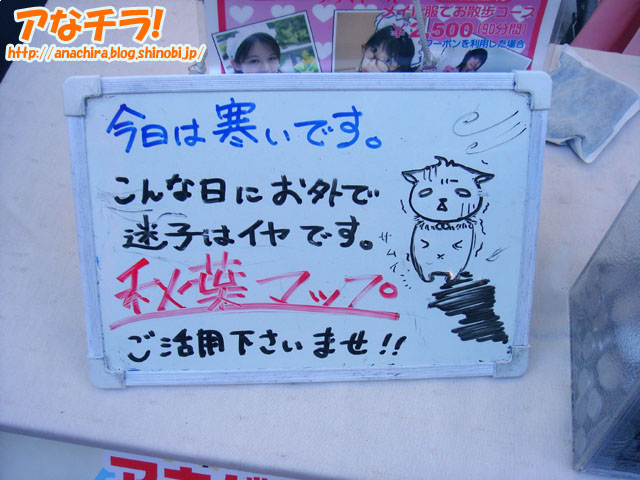 アなチラ!
http://anachira.blog.shinobi.jp/
メイド服でお散歩コース
¥2,500(90分間)
クーポンを利用した場合
今日は寒いです。
こんな日にお外で
迷子はイヤです。
サムイ
秋葉マップ。
ご活用下さいませ!!